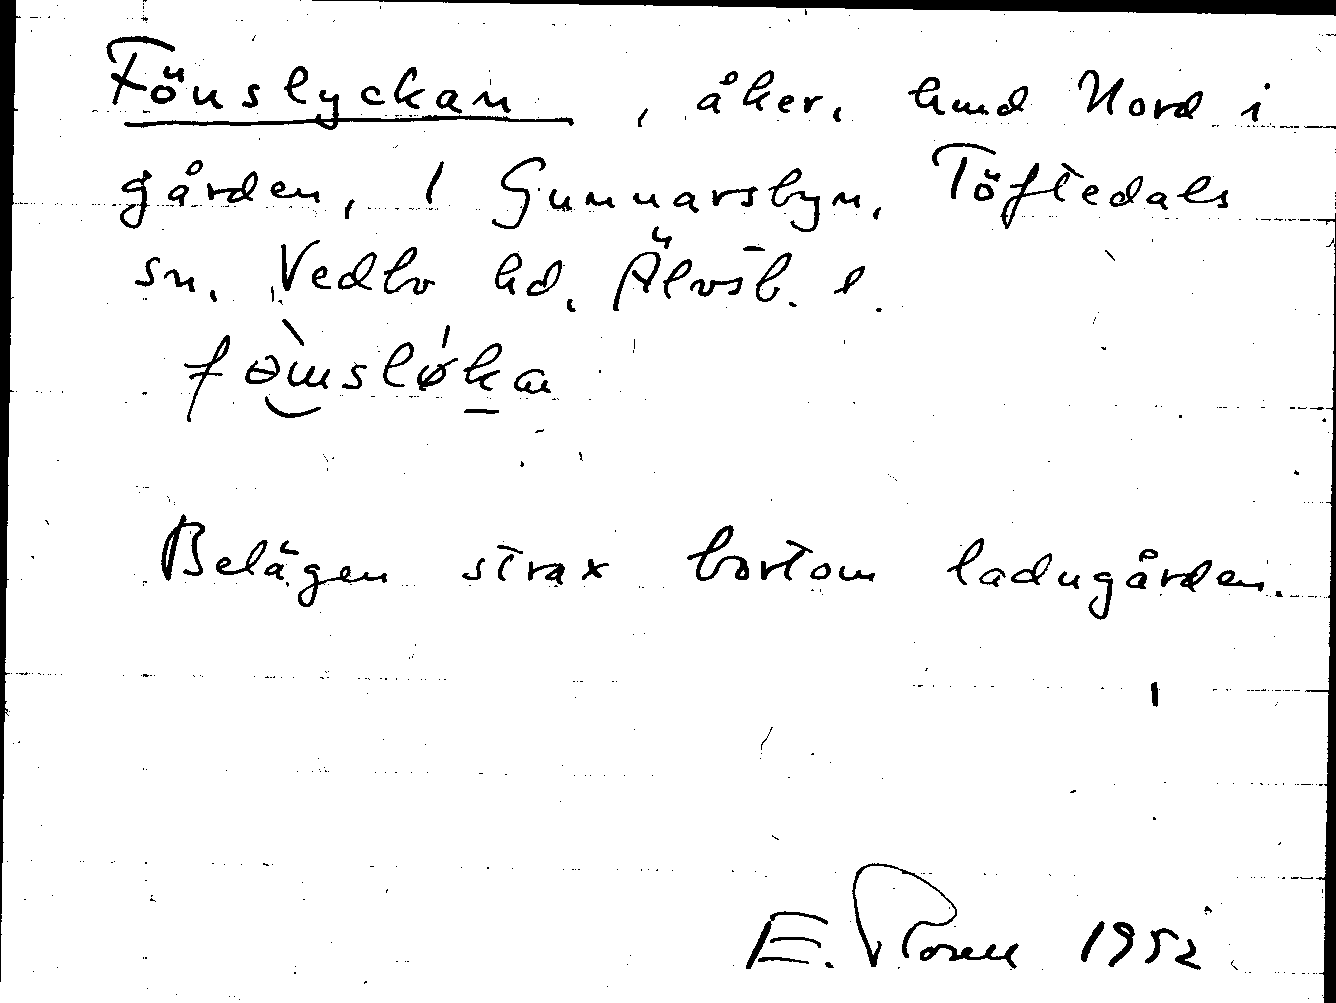 Fönslyckan, åker, hmd Nord i
gården, 1 Gunnarsbyn, Töftedals
sn, Vedbo hd, Älvsb. l.
Belägen strax bortom ladugården.
E. Rosell 1952